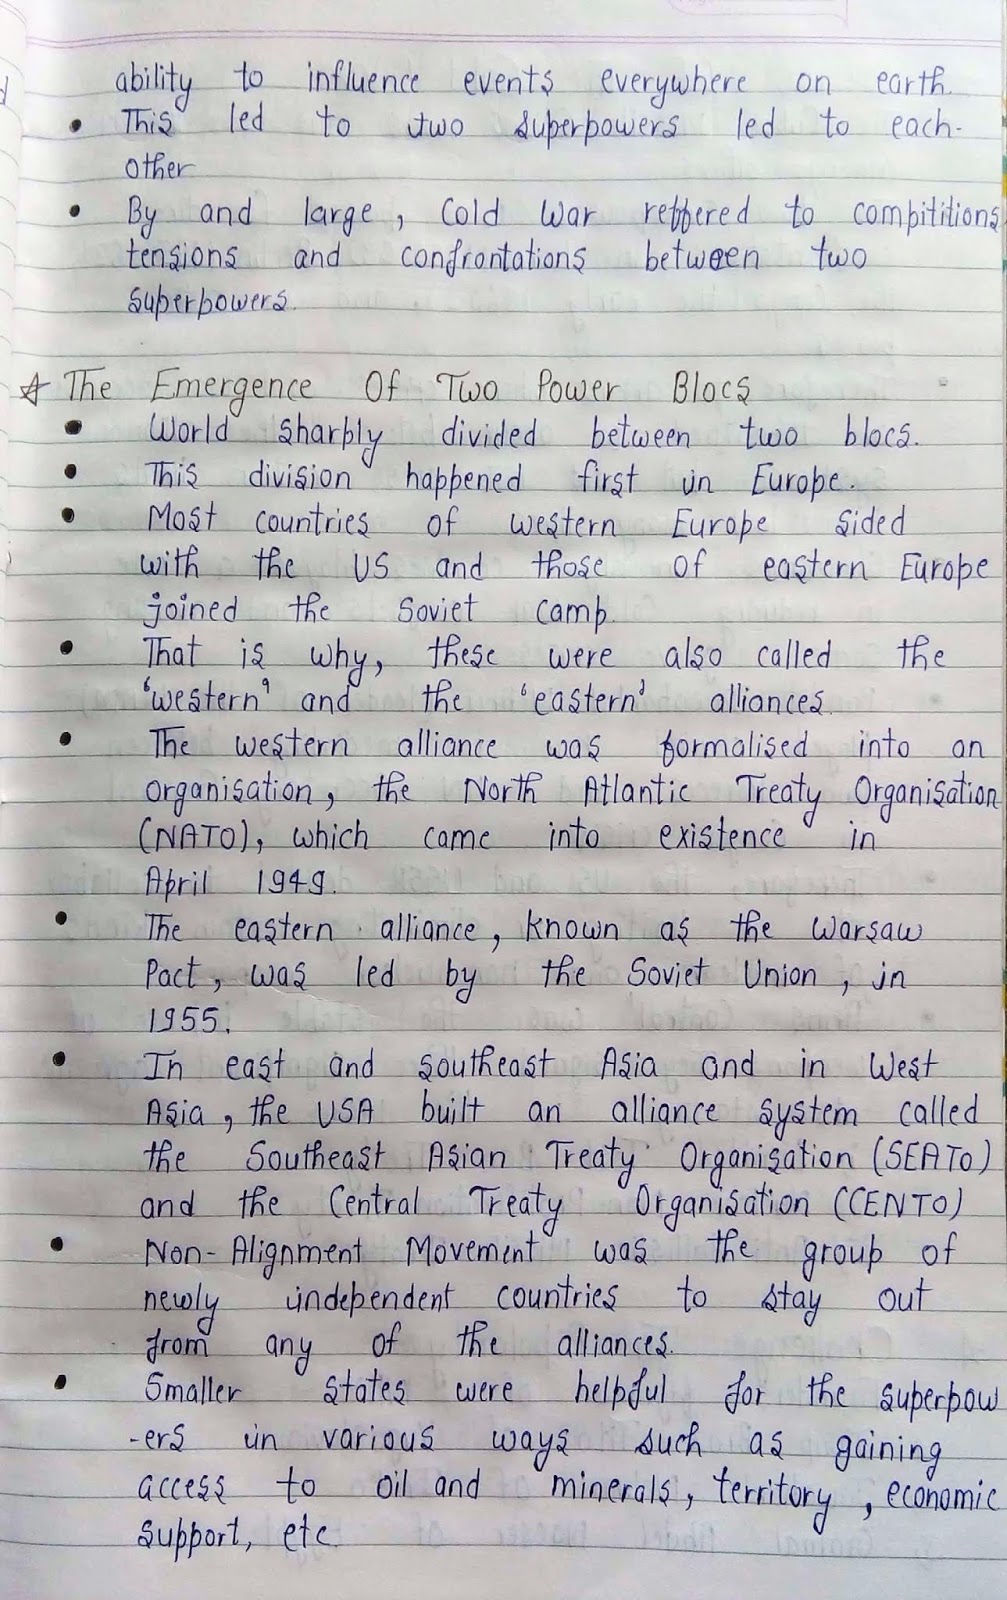 ability to influence events everywhere on earth.
• This led to two superpowers led to each-
other
• By and large, Cold War reffered to compititions
tensions and confrontations between two
superpowers.
☆ The Emergence Of Two Power Blocs
• World sharply divided between two blocs.
• This division happened first in Europe.
• Most countries of western Europe sided
with the US and those of eastern Europe
joined the Soviet camp
• That is why, these were also called the
'western' and the 'eastern' alliances.
• The western alliance was formalised into an
organisation, the North Atlantic Treaty Organisation
(NATO), which came into existence in
April 1949.
• The eastern alliance, known as the Warsaw
Pact, was led by the Soviet Union, in
1955.
• In east and southeast Asia and in West
Asia, the USA built an alliance system called
the Southeast Asian Treaty Organisation (SEATO)
and the Central Treaty Organisation (CENTO)
• Non-Alignment Movement was the group of
newly independent countries to stay out
from any of the alliances.
• Smaller states were helpful for the superpow
-ers in various ways such as gaining
access to oil and minerals, territory, economic
support, etc